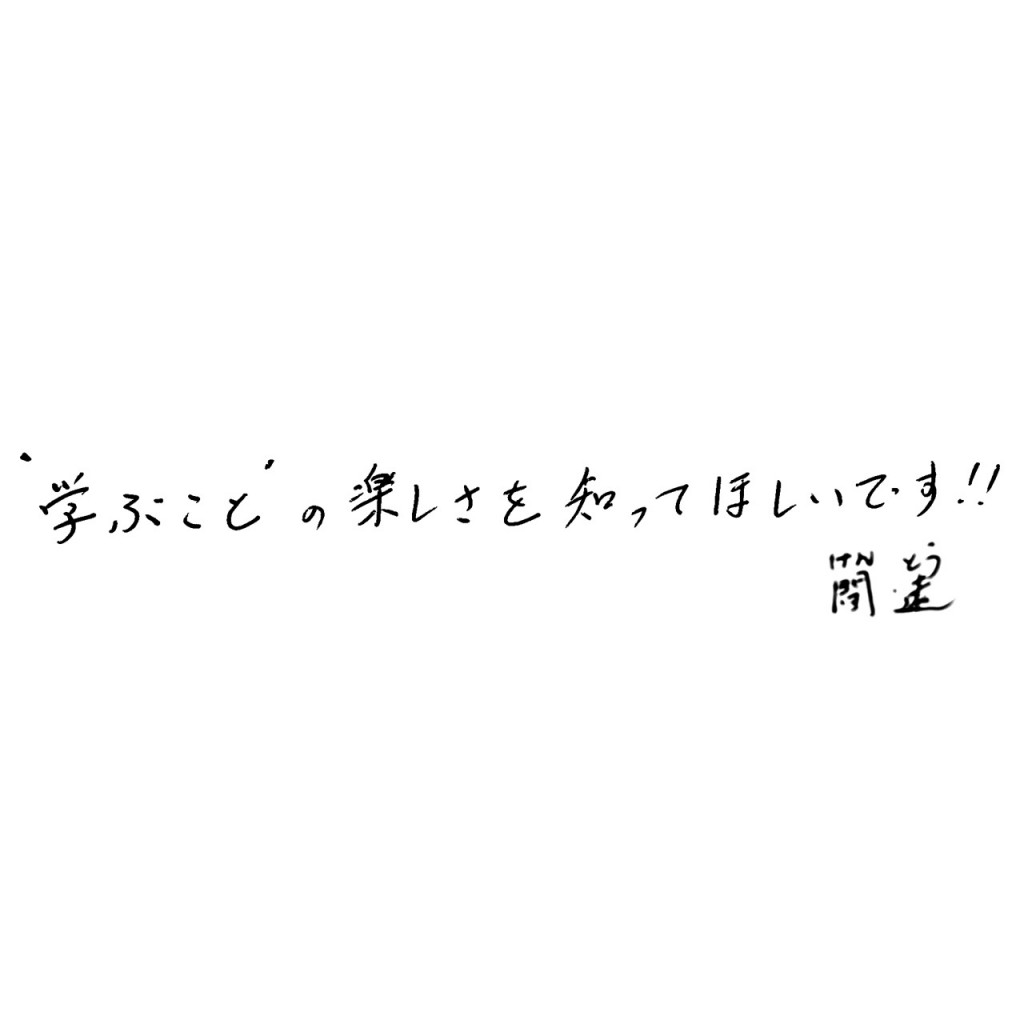 "学ぶこと"の楽しさを知ってほしいです!!
けん とう